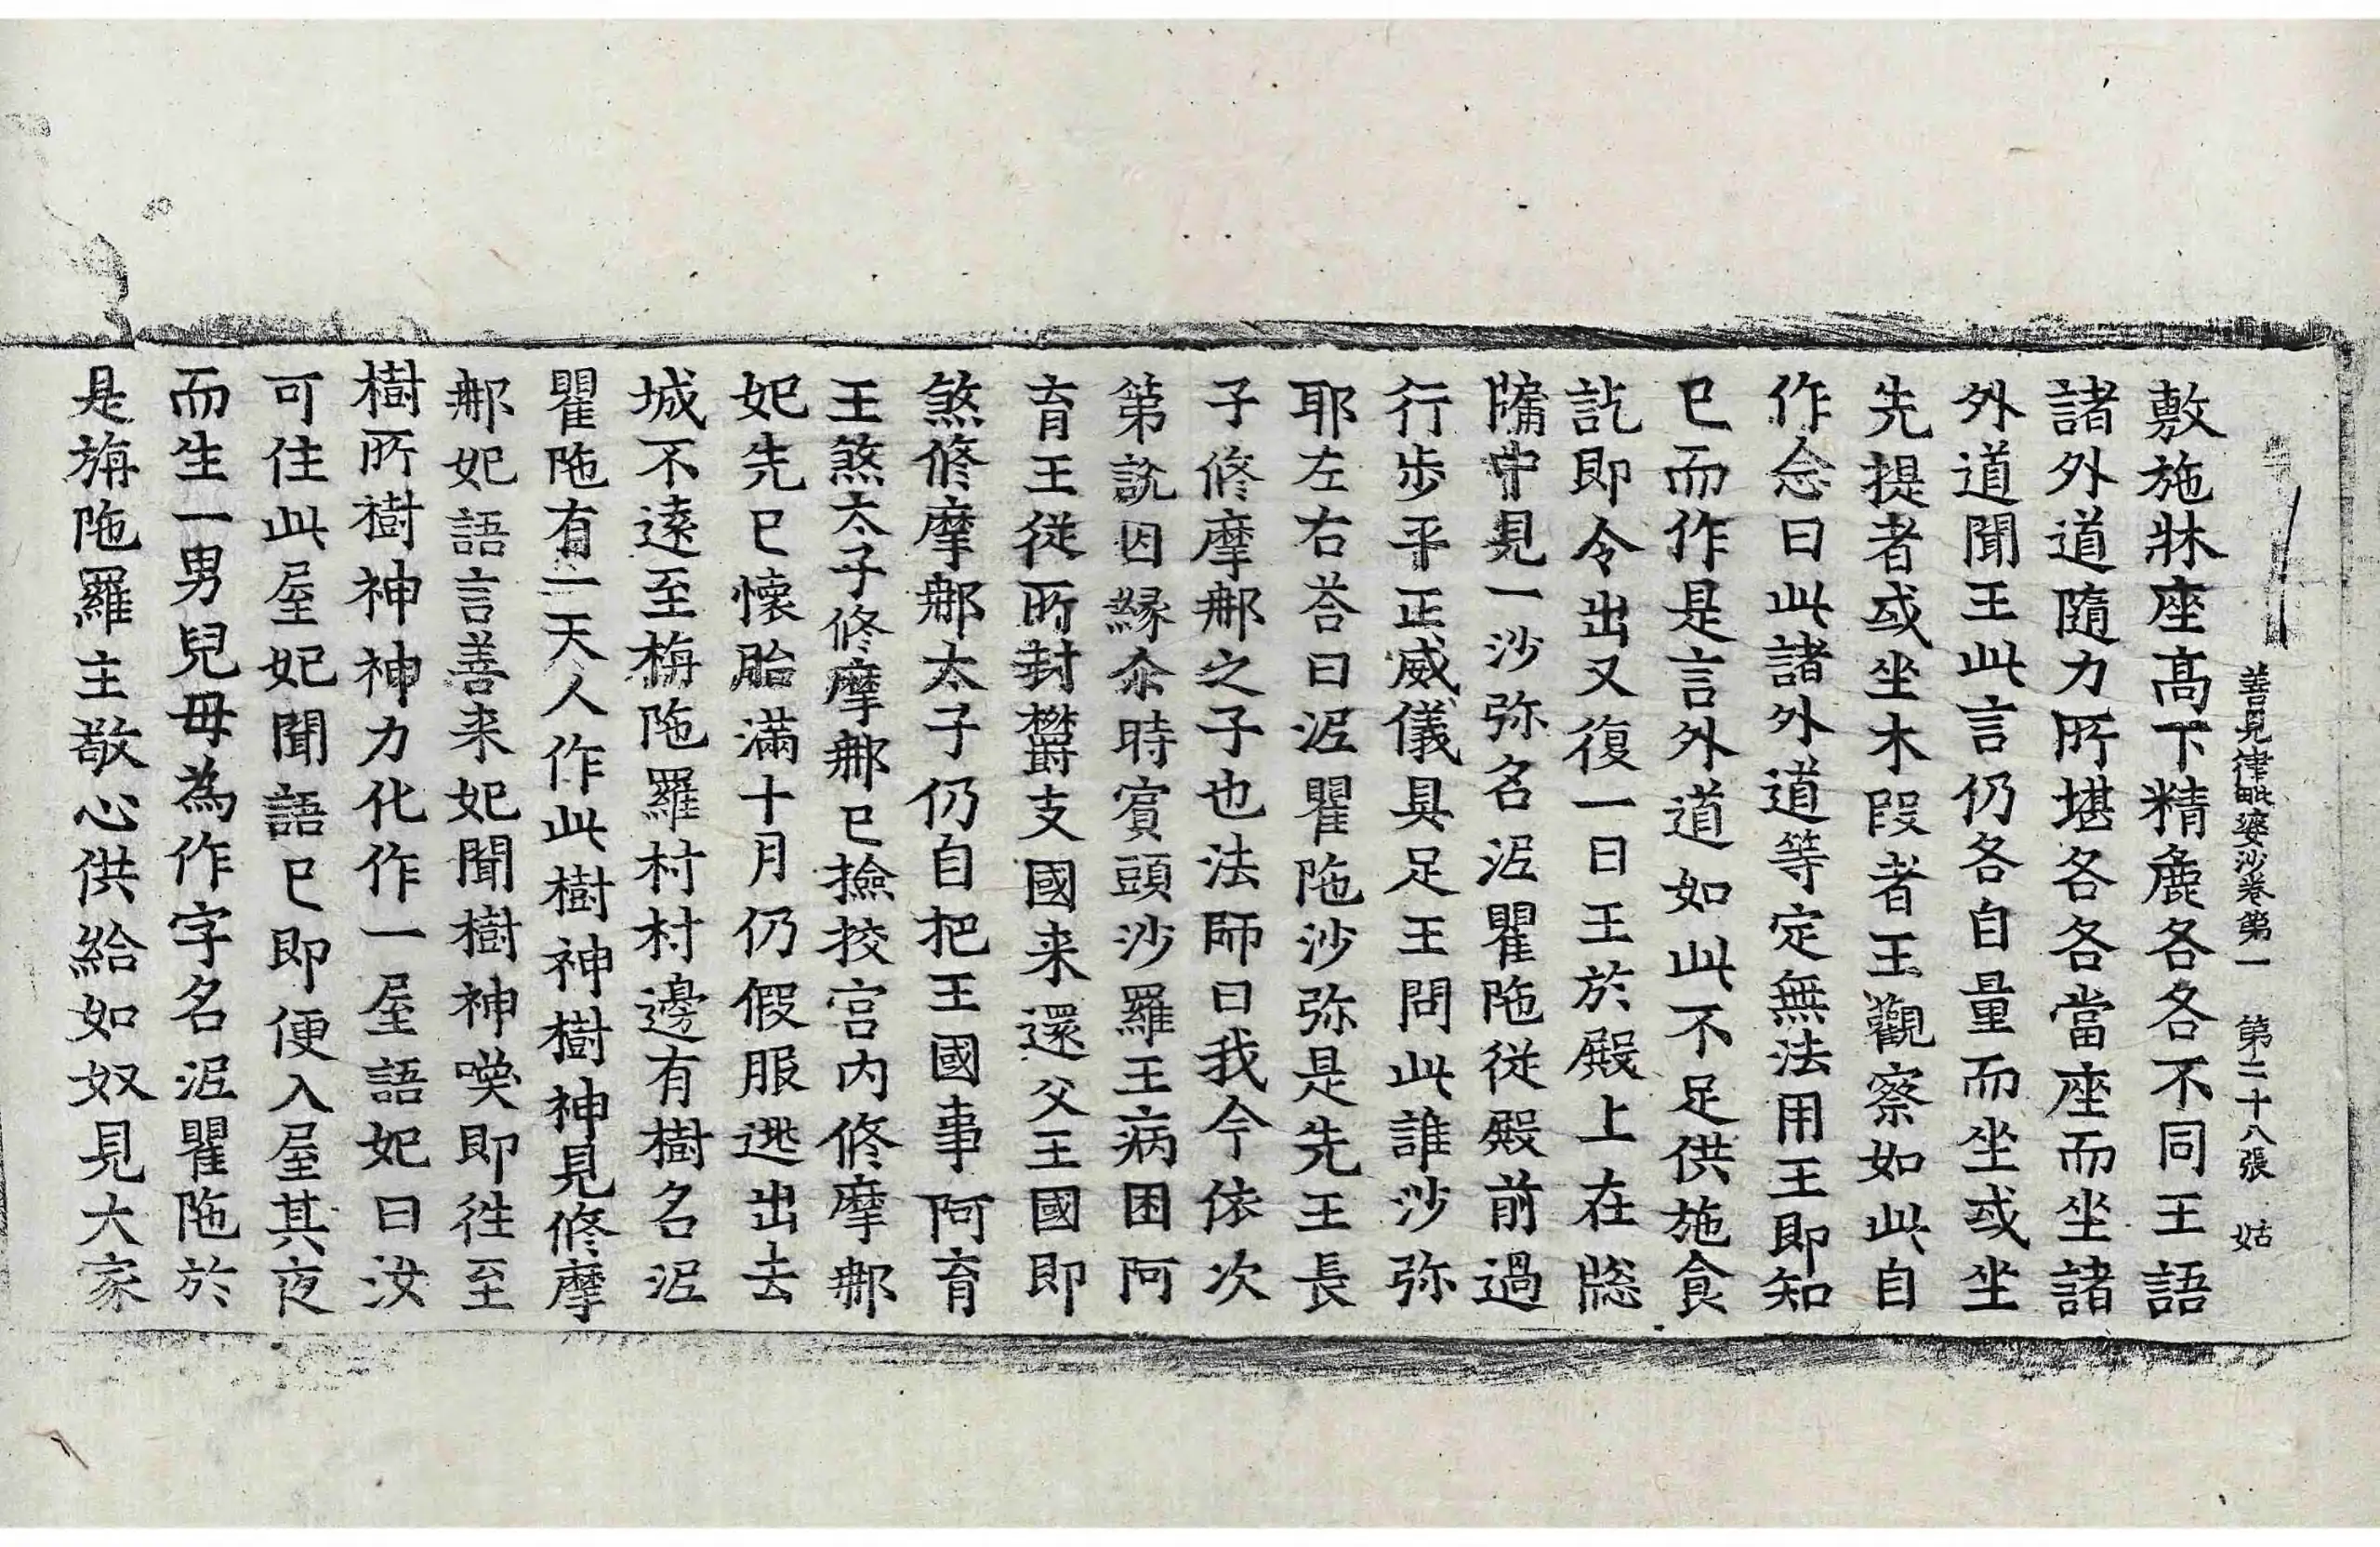 善見律毗婆沙卷第一 第二十八張 姑
敷施牀座高下精麁各各不同王語
諸外道隨力所堪各各當座而坐諸
外道聞王此言仍各自量而坐或坐
先提者或坐木段者王觀察如此自
作念曰此諸外道等定無法用王即知
已而作是言外道如此不足供施食
訖即令出又復一日王於殿上在牎
牗中見一沙弥名泥瞿陁従殿前過
行步平正威儀具足王問此誰沙弥
耶左右荅曰泥瞿陁沙弥是先王長
子修摩那之子也法師曰我今依次
第說因縁尒時賔頭沙羅王病困阿
育王従所封欝支國来還父王國即
煞修摩那太子仍自把王國事阿育
王煞太子修摩那已撿挍宮內修摩那
妃先已懷胎滿十月仍假服逃出去
城不遠至栴陁羅村村邊有樹名泥
瞿陁有一天人作此樹神樹神見修摩
那妃語言善来妃聞樹神喚即往至
樹所樹神神力化作一屋語妃曰汝
可住此屋妃聞語已即便入屋其夜
而生一男兒母為作字名泥瞿陁於
是旃陁羅主敬心供給如奴見大家